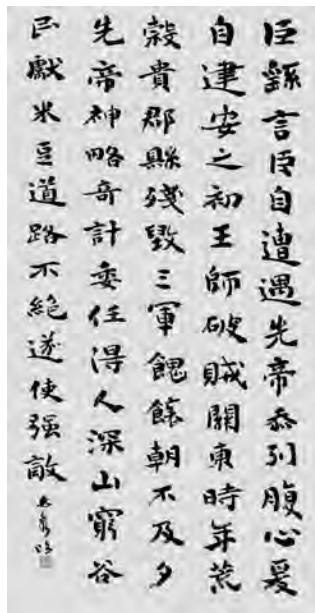 臣繇言臣自遭遇先帝忝列腹心爰
自建安之初王師破賊關東時年荒
穀貴郡縣殘毀三軍餽饟朝不及夕
先帝神略奇計委任得人深山窮谷
民獻米豆道路不絕遂使强敵